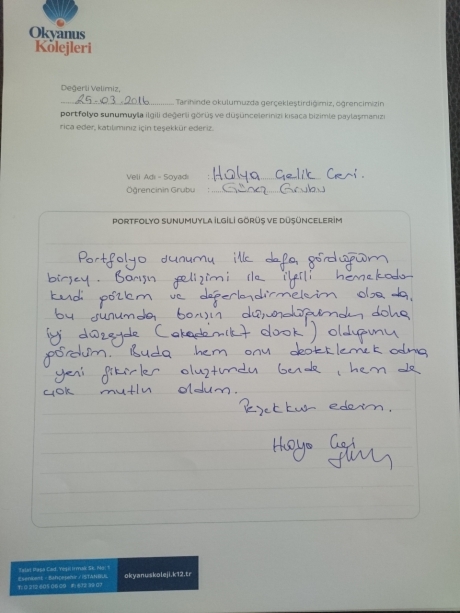 Okyanus
Kolejleri
Değerli Velimiz,
25.03.2016 Tarihinde okulumuzda gerçekleştirdiğimiz, öğrencimizin
portfolyo sunumuyla ilgili değerli görüş ve düşüncelerinizi kısaca bizimle paylaşmanızı
rica eder, katılımınız için teşekkür ederiz.
Veli Adı - Soyadı : Hülya Çelik Ceri.
Öğrencinin Grubu : Güneş Grubu
PORTFOLYO SUNUMUYLA İLGİLİ GÖRÜŞ VE DÜŞÜNCELERİM
Portfolyo sunumu ilk defa gördüğüm
birşey. Barışın gelişimi ile ilgili hernekadar
kendi gözlem ve değerlendirmelerim olsa da,
bu sunumda barışın düşündüğümden daha
iyi düzeyde (akademikt olarak) olduğunu
gördüm. Buda hem onu desteklemek adına
yeni fikirler oluşturdu bende, hem de
çok mutlu oldum.
Teşekkür ederim.
Talat Paşa Cad. Yeşil Irmak Sk. No: 1
Esenkent - Bahçeşehir / İSTANBUL
okyanuskoleji.k12.tr